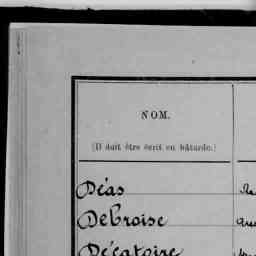 NOM.
(Il doit être écrit en bâtarde.)
Déas
Debroise
Décatoire